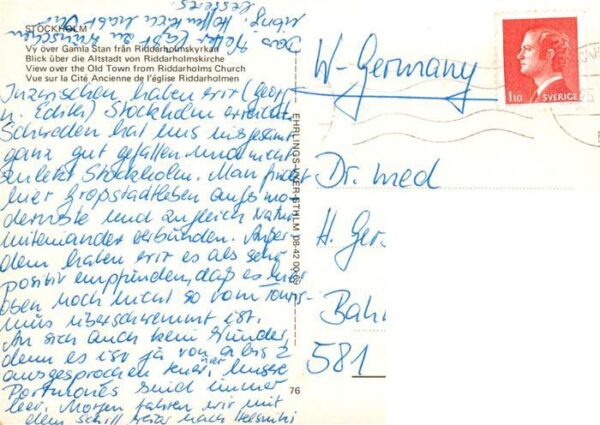 STOCKHOLM
Vy över Gamla Stan från Riddarholmskyrkan
Blick über die Altstadt von Riddarholmskirche
View over the Old Town from Riddarholms Church
Vue sur la Cité Ancienne de l'église Riddarholmen
Inzwischen haben wir (Georg
u. Edith) Stockholm erreicht.
Schweden hat uns insgesamt
ganz gut gefallen und nicht
zuletzt Stockholm. Man findet
hier Großstadtleben aufs mo-
dernste und zugleich Natur
miteinander verbunden. Außer
dem haben wir es als sehr
positiv empfunden, daß es hier
oben noch nicht so vom Touris-
mus überschwemmt ist.
An sich auch kein Wunder,
denn es ist ja von A bis Z
ausgesprochen teuer hier. Unsere
Portmonés sind immer
leer. Morgen fahren wir mit
dem Schiff weiter nach Helsinki
Das Wetter läßt zu wünschen
übrig. Hoffentlich habt Ihr
besseres
EHRLINGS-VYER-STHLM 08-42 00
76
1.10 SVERIGE
W-Germany
Dr. med
H. Ger
Bah
581